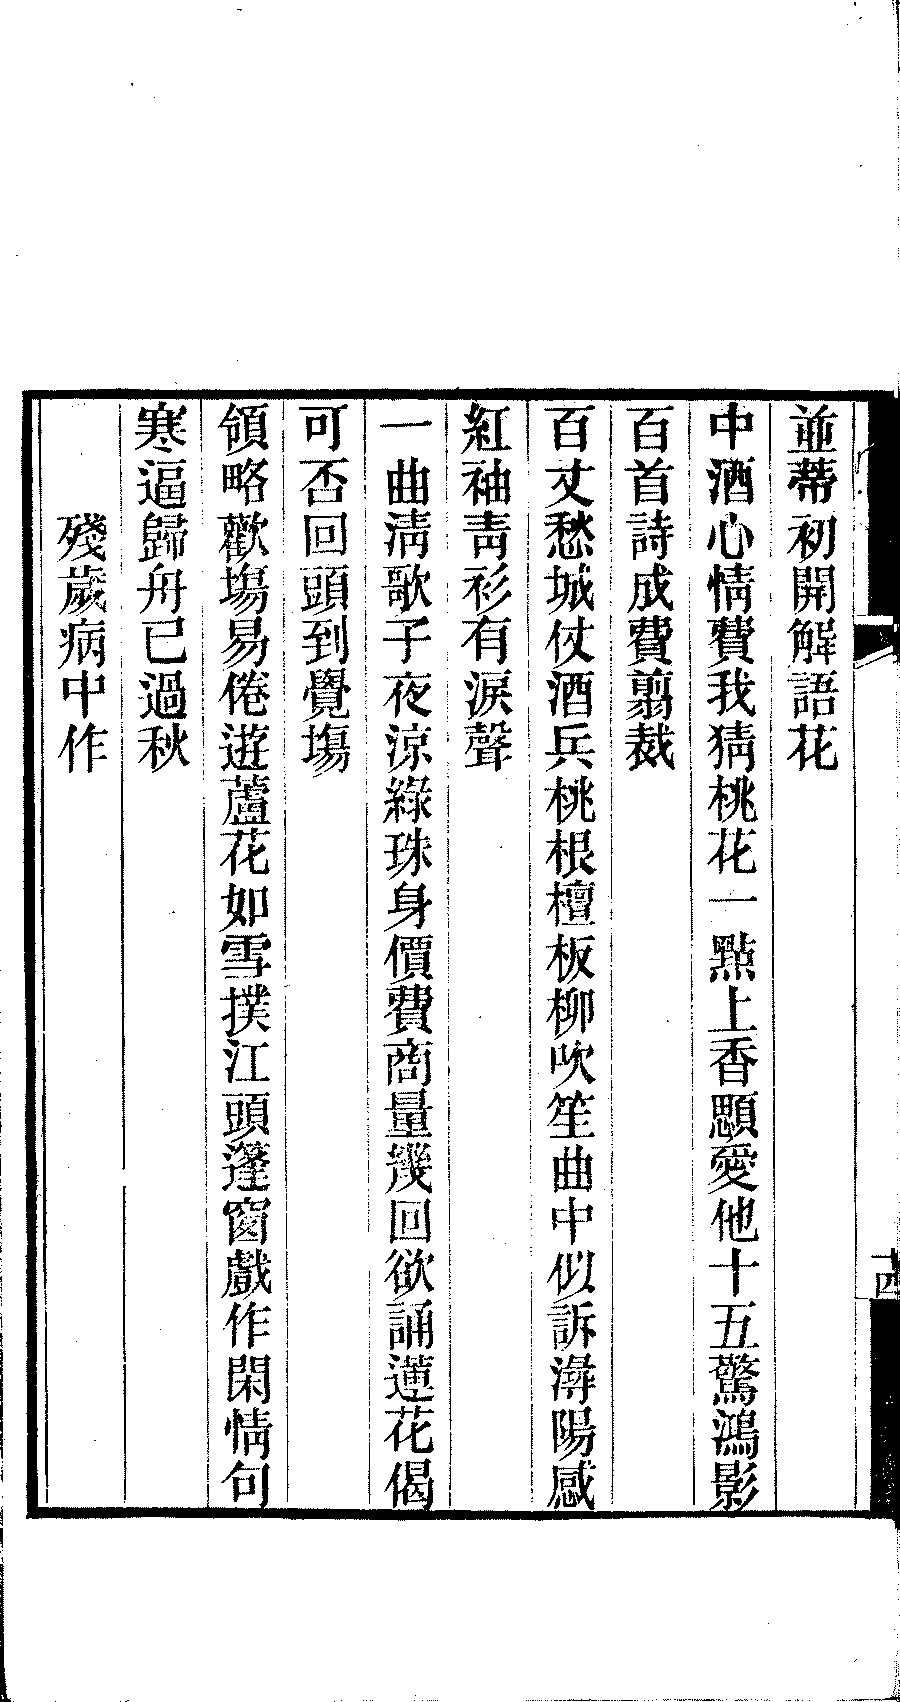 並蒂初開解語花
中酒心情費我猜桃花一點上香顋愛他十五驚鴻影
百首詩成費翦裁
百丈愁城仗酒兵桃根檀板柳吹笙曲中似訴潯陽感
紅袖靑衫有淚聲
一曲淸歌子夜涼綠珠身價費商量幾回欲誦蓮花偈
可否回頭到覺塲
領略歡塲易倦遊蘆花如雪撲江頭篷窗戲作閑情句
寒逼歸舟已過秋
殘歲病中作
十四